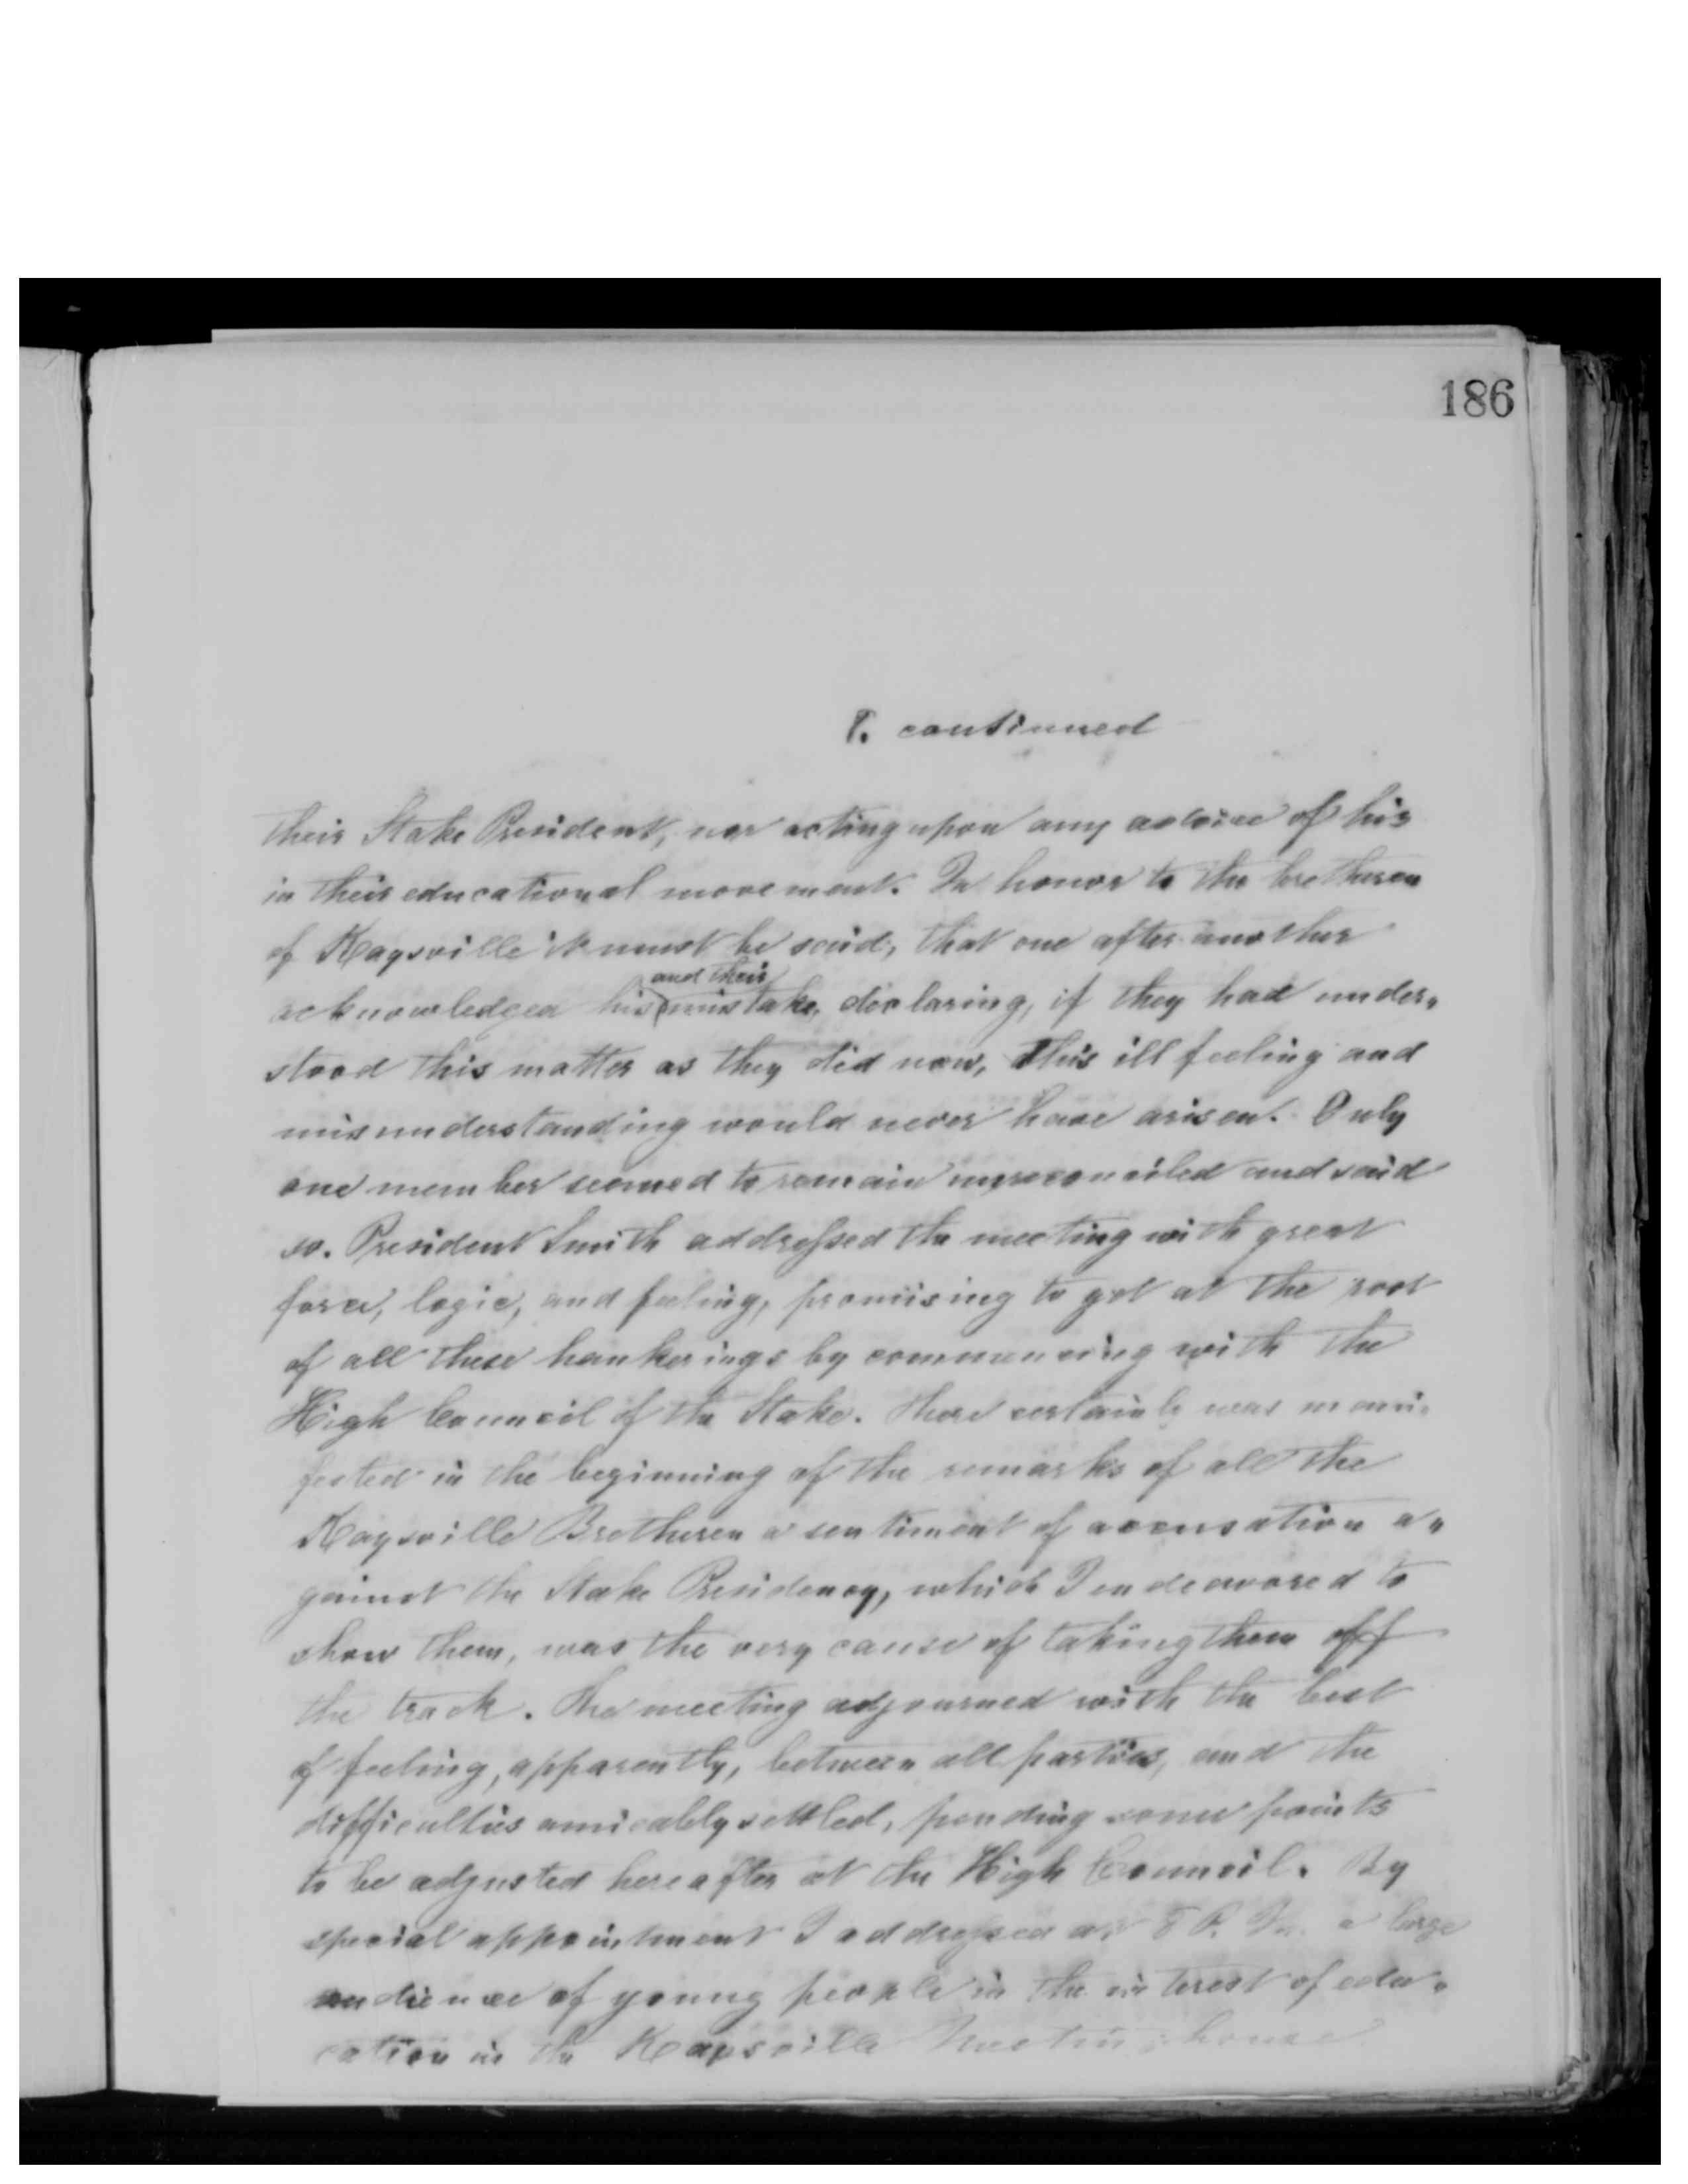 186
T. continued
their Stake President, nor acting upon any advice of his
in their educational movement. In honor to the bretheren
of Kaysville it must be said, that one after another
and their
acknowledged his mistake, declaring, if they had under-
stood this matter as they did now, this ill feeling and
misunderstanding would never have arisen. Only
one member seemed to remain unreconciled and said
so. President Smith addressed the meeting with great
force, logic, and feeling, promising to get at the root
of all these hankerings by commencing with the
High Council of the Stake. There certainly was mani-
fested in the beginning of the remarks of all the
Kaysville Bretheren a sentiment of accusation a-
gainst the Stake Presidency, which I endeavored to
show them, was the very cause of taking them off
the track. The meeting adjourned with the best
of feeling, apparently, between all parties, and the
difficulties amicably settled, pending some points
to be adjusted hereafter at the High Council. By
special appointment I addressed at a large
audience of young people in the interest of edu-
cation in the Kaysville Meetinghouse